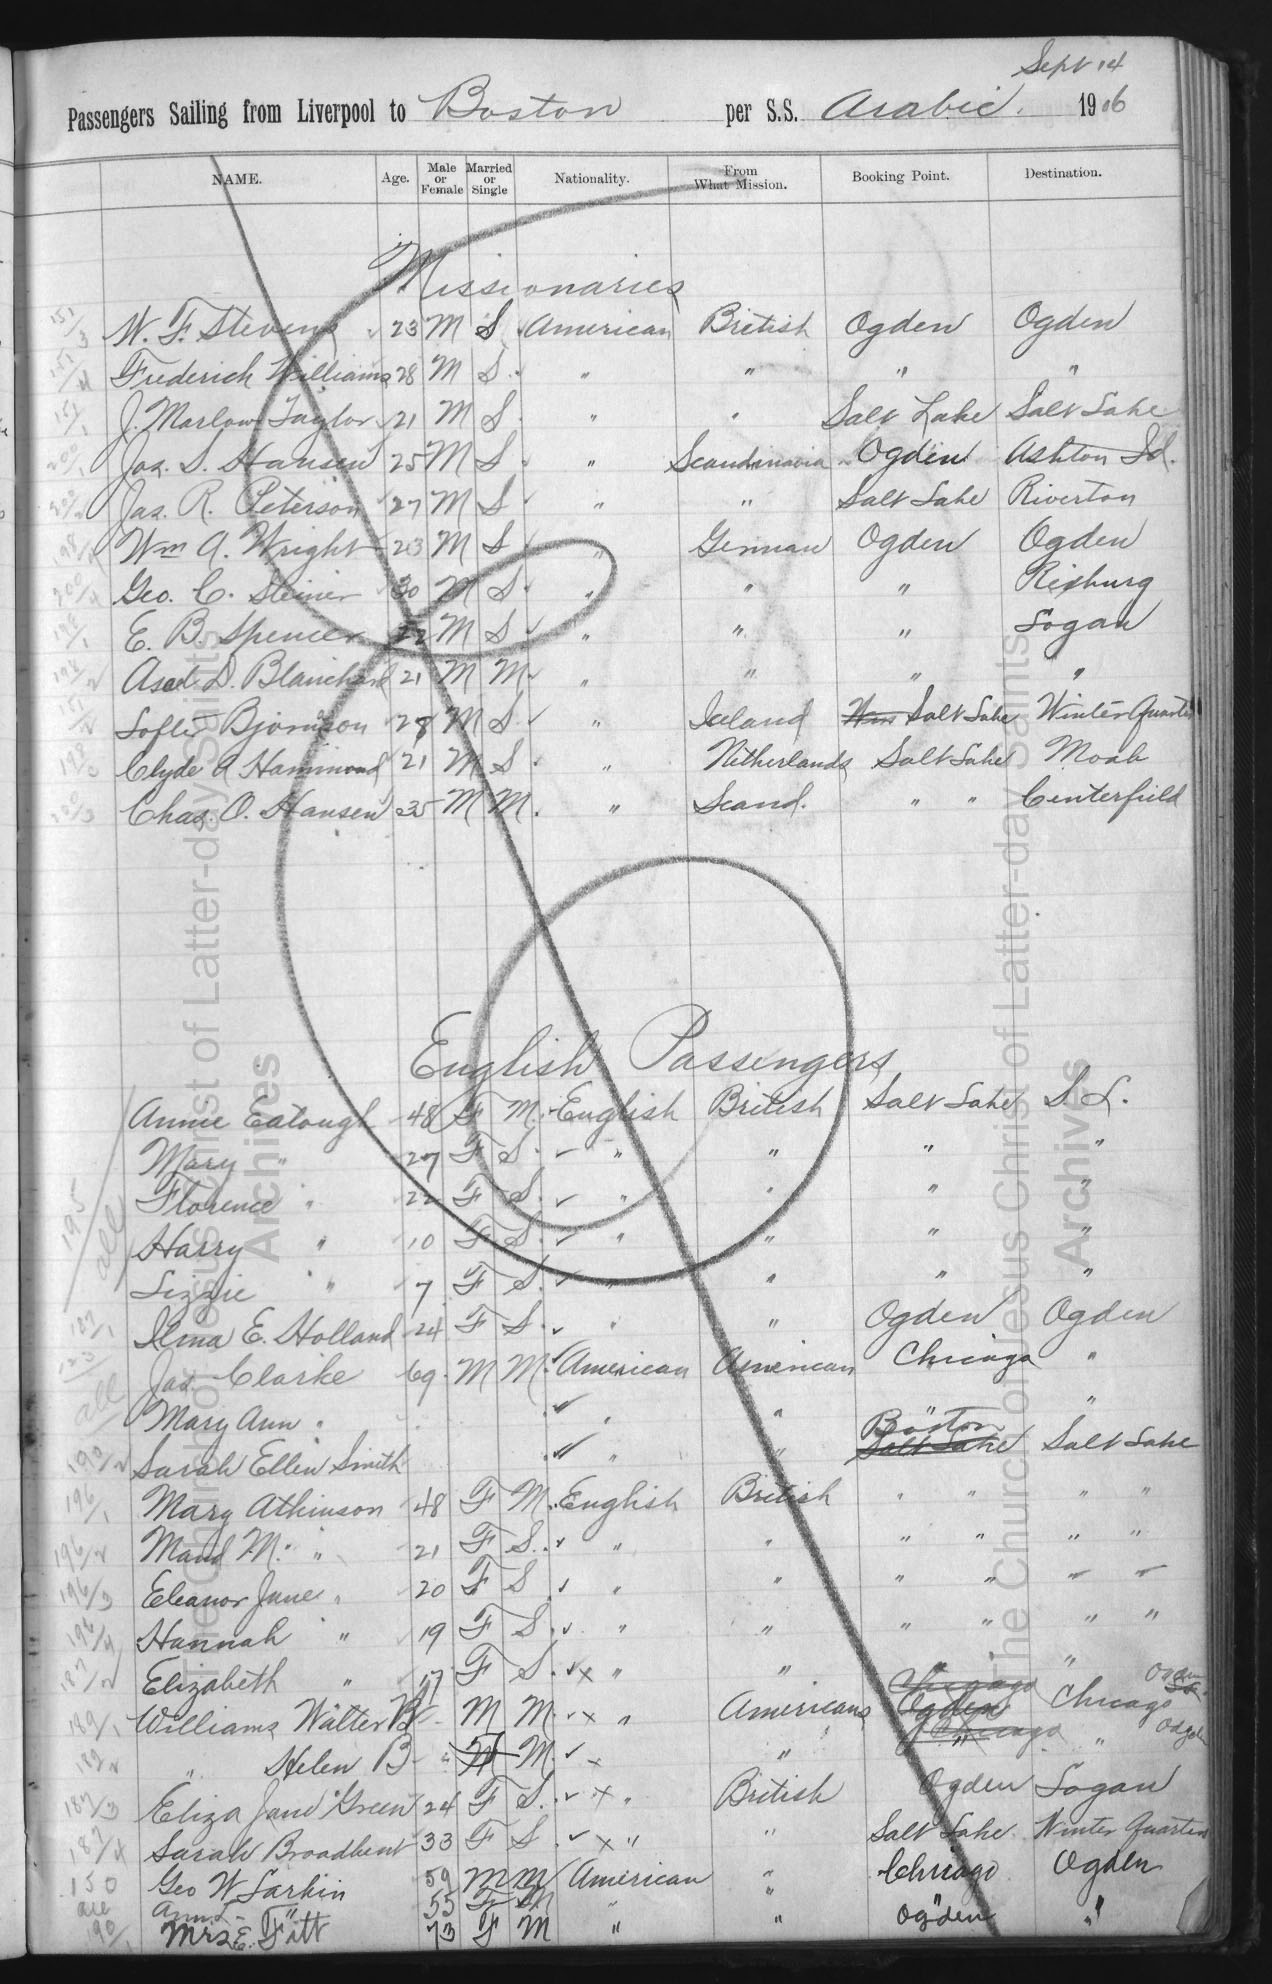 Sept 14
Passengers Sailing from Liverpool to Boston per S.S. Arabic. 1906
NAME. Age. Male or Female Married or Single Nationality. From What Mission. Booking Point. Destination.
Missionaries
151/3 W. F. Stevens 23 M S American British Ogden Ogden
151/4 Frederick Williams 28 M S " " " "
151/1 J. Marlow Taylor 21 M S " " Salt Lake Salt Lake
200/1 Jas. S. Hansen 25 M S " Scandinavia Ogden Ashton Id.
200/2 Jas. R. Peterson 27 M S " " Salt Lake Riverton
Wm A. Wright 23 M S " German Ogden Ogden
200/4 Geo. C. Steiner 30 M S " " " Rexburg
E. B. Spencer 22 M S " " " Logan
Asael D. Blanchard 21 M M " " " "
151/2 Lofter Bjornson 28 M S " Iceland Salt Lake Winter Quarters
Clyde A Hammond 21 M S " Netherlands Salt Lake Moab
200/3 Chas. O. Hansen 35 M M. " Scand. " " Centerfield
English Passengers
Annie Eatough 48 F M. English British Salt Lake S L.
Mary " 27 F S. " " " "
Florence " 22 F S. " " " "
195 all Harry " 10 F S. " " " "
Lizzie " 7 F S. " " " "
187/1 E. Holland 24 F S. " " Ogden Ogden
123 Jas Clarke 69 M M. American American Chicago "
all Mary Ann " " " " "
Boston
190/2 Sarah Ellen Smith " " Salt Lake Salt Lake
196/1 Mary Atkinson 48 F M. English British " " " "
196/2 Maud M. " 21 F S. " " " " " "
196/3 Eleanor Jane " 20 F S " " " " " "
196/4 Hannah " 19 F S. " " " " " "
187/2 Elizabeth " 17 F S. x " " " "
189/1 Williams Walter B - M M x " Americans Chicago Ogden Chicago Ogden
189/2 " Helen B - " M. x " Chicago " "
187/3 Eliza Jane Green 24 F S. x " British Ogden Logan
187/4 Sarah Broadbent 33 F S x " " Salt Lake Winter Quarters
150 Geo W Larkin 59 M M American " Chicago Ogden
all Ann L " 55 F M " "
190/1 Mrs E. Fitt 73 F M " " Ogden "
The Church of Jesus Christ of Latter-day Saints
Archives
The Church of Jesus Christ of Latter-day Saints
Archives